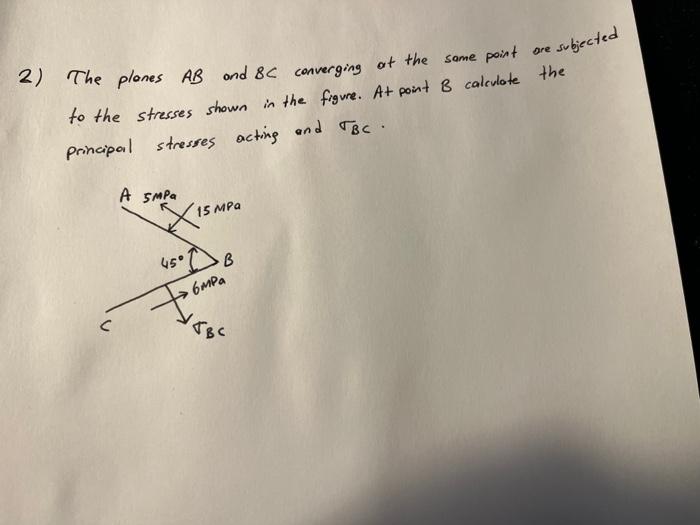 2) The planes AB and BC converging at the same point are subjected
to the stresses shown in the figure. At point B calculate the
principal stresses acting and σBC.
A 5MPa
15 MPa
45°
B
6MPa
C
σBC